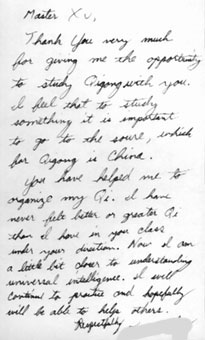 Master Xu,
Thank You very much
for giving me the opportunity
to study Qigong with you.
I feel that to study
something it is important
to go to the soure, which
for Qigong is China.
You have helped me to
organize my Qi. I have
never felt better or greater Qi
than I have in your class
under your direction. Now I am
a little bit closer to understanding
universal intelligence. I will
continue to practice and hopefully
will be able to help others.
Respectfully